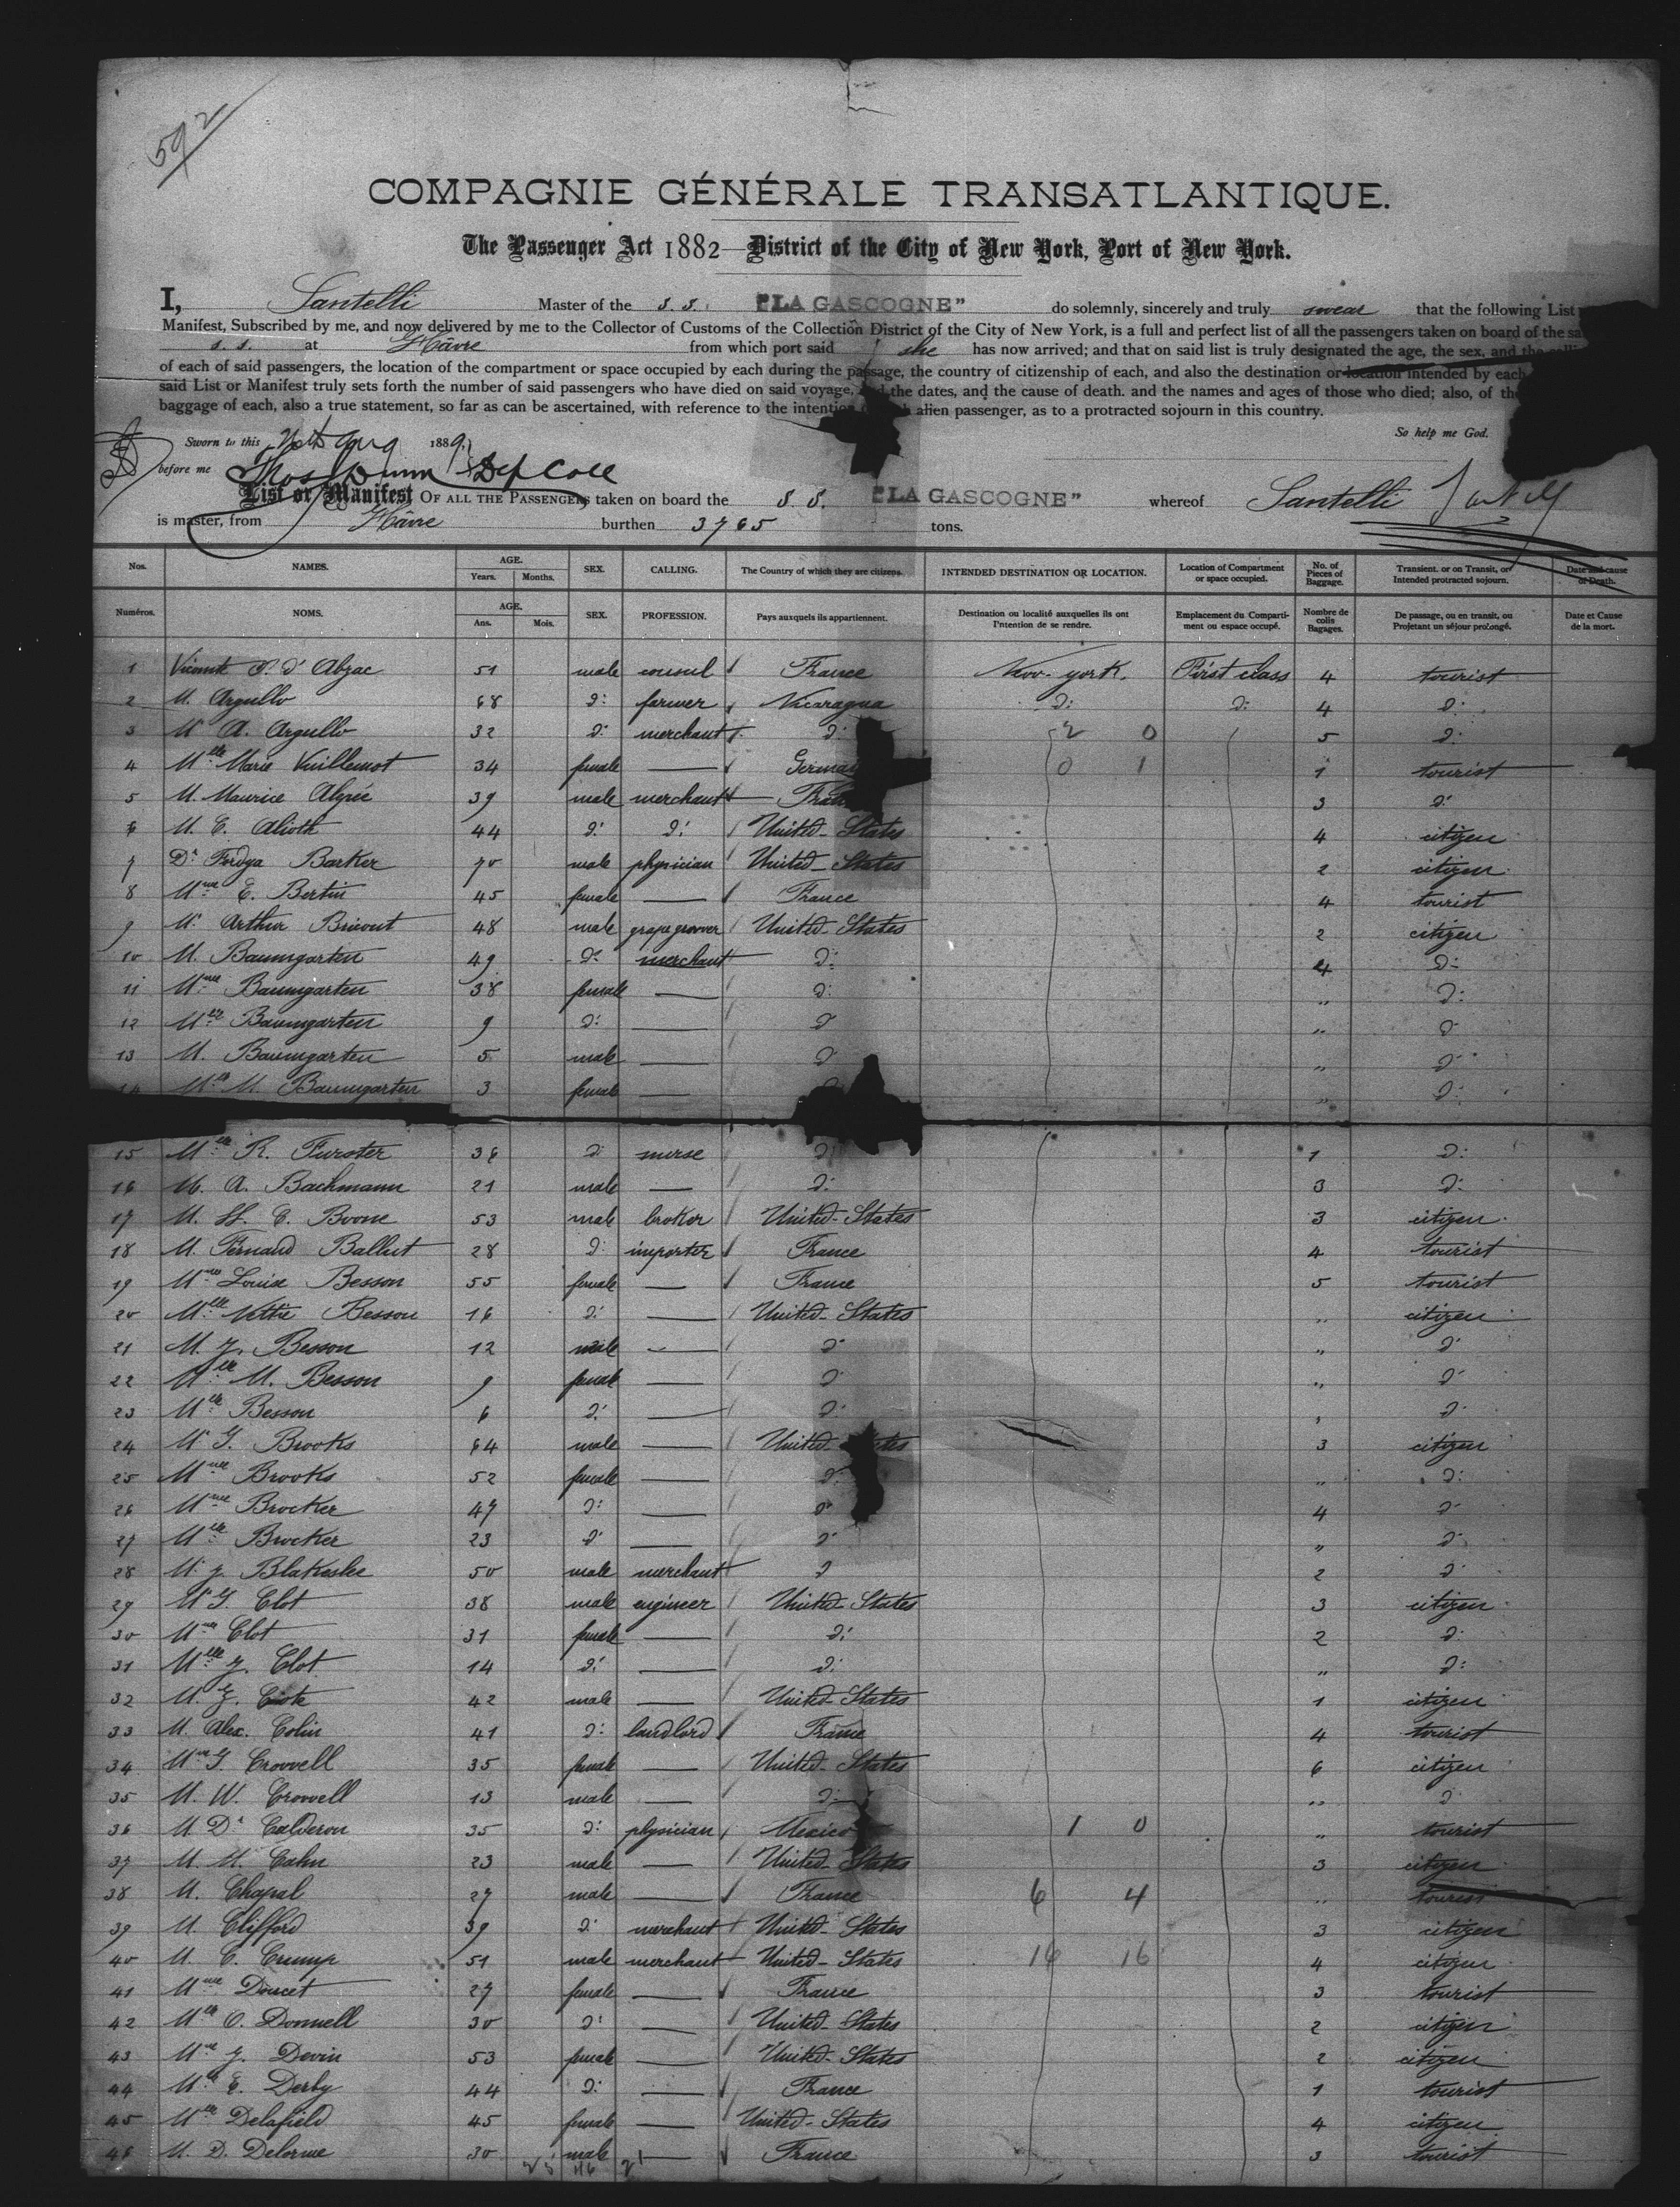 592
COMPAGNIE GÉNÉRALE TRANSATLANTIQUE.
The Passenger Act 1882—District of the City of New York, Port of New York.
I, Santelli Master of the s.s. "LA GASCOGNE" do solemnly, sincerely and truly swear that the following List
Manifest, Subscribed by me, and now delivered by me to the Collector of Customs of the Collection District of the City of New York, is a full and perfect list of all the passengers taken on board of the
s.s. at Hâvre from which port said she has now arrived; and that on said list is truly designated the age, the sex, and the
of each of said passengers, the location of the compartment or space occupied by each during the passage, the country of citizenship of each, and also the destination or location intended by each
said List or Manifest truly sets forth the number of said passengers who have died on said voyage, and the dates, and the cause of death. and the names and ages of those who died; also, of the
baggage of each, also a true statement, so far as can be ascertained, with reference to the intention alien passenger, as to a protracted sojourn in this country.
So help me God.
Sworn to this Aug 1889.
before me Thos Dunn Dep Coll
List or Manifest OF ALL THE PASSENGERS taken on board the S.S. "LA GASCOGNE" whereof Santelli
is master, from Hâvre burthen 3765 tons.
Nos. NAMES. AGE. Years. Months. SEX. CALLING. The Country of which they are citizens. INTENDED DESTINATION OR LOCATION. Location of Compartment or space occupied. No. of Pieces of Baggage. Transient. or on Transit, or Intended protracted sojourn. Date and cause of Death.
Numéros. NOMS. AGE. Ans. Mois. SEX. PROFESSION. Pays auxquels ils appartiennent. Destination ou localité auxquelles ils ont l'intention de se rendre. Emplacement du Comparti-ment ou espace occupé. Nombre de colis Bagages. De passage, ou en transit, ou Projetant un séjour prolongé. Date et Cause de la mort.
1 Vicomte P. d'Abzac 51 male consul France New-york. First class 4 tourist
2 M. Argullo 68 d: farmer Nicaragua d: d: 4 d:
3 Mr A. Argullo 32 d: merchant d: 2 0 5 d:
4 Melle Marie Vuillemot 34 female — German 0 1 1 tourist
5 M. Maurice Alyrée 39 male merchant Fran 3 d:
6 M. E. Alioth 44 d: d: United-States 4 citizen
7 Dr Fordya Barker 70 male physician United-States 2 citizen
8 Mme E. Bertin 45 female — France 4 tourist
9 Mr Arthur Bricout 48 male grape groover United-States 2 citizen
10 M. Baumgarten 49 d: merchant d: 4 d:
11 Mme Baumgarten 38 female — d: „ d:
12 Melle Baumgarten 9 d: — d: „ d:
13 M. Baumgarten 5 male — d: „ d:
14 Melle M. Baumgarten 3 female — „ d:
15 Melle R. Furster 36 d: nurse d: 1 d:
16 M. A. Bachmann 21 male — d: 3 d:
17 M. H. C. Boone 53 male broker United-States 3 citizen
18 M. Fernand Ballut 28 d: importer France 4 tourist
19 Mme Louise Besson 55 female — France 5 tourist
20 Melle Nettie Besson 16 d: — United-States „ citizen
21 M. J. Besson 12 male — d: „ d:
22 Melle M. Besson 9 female — d: „ d:
23 Melle Besson 6 d: — d: „ d:
24 Mr G. Brooks 64 male — United-States 3 citizen
25 Mme Brooks 52 female — d: „ d:
26 Mme Brocker 47 d: — d: 4 d:
27 Melle Brocker 23 d: — d: „ d:
28 M. J. Blakeslee 50 male merchant d: 2 d:
29 Mr G. Clot 38 male engineer United-States 3 citizen
30 Mme Clot 31 female — d: 2 d:
31 Melle J. Clot 14 d: — d: „ d:
32 M. J. Ciote 42 male — United-States 1 citizen
33 M. Alex. Colin 41 d: landlord France 4 tourist
34 Mme G. Crowell 35 female — United-States 6 citizen
35 M. W. Crowell 13 male — d: „ d:
36 M. Dr Calderon 35 d: physician Mexico 1 0 „ tourist
37 M. M. Cahn 23 male — United-States 3 citizen
38 M. Chapal 27 male — France 6 4 „ tourist
39 M. Clifford 39 d: merchant United-States 3 citizen
40 M. C. Crump 51 male merchant United-States 16 16 4 citizen
41 Mme Doucet 27 female — France 3 tourist
42 Melle O. Donnell 30 d: — United-States 2 citizen
43 Mme J. Devin 53 female — United-States 2 citizen
44 Melle E. Derby 44 d: — France 1 tourist
45 Melle Delafield 45 female — United-States 4 citizen
46 M. D. Delorme 30 male — France 3 tourist
25 46 21